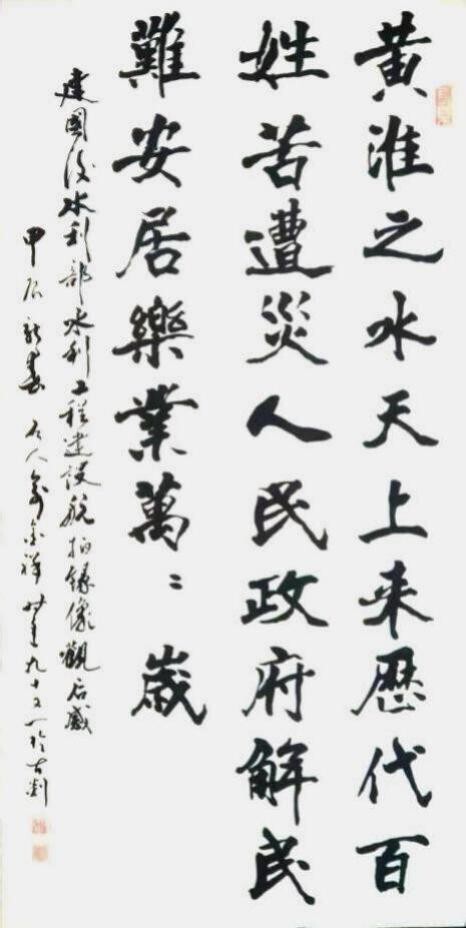 黃淮之水天上来歷代百
姓苦遭災人民政府解民
難安居樂業萬〻歲
建國後水利部水利工程建設航拍錄像觀后感
甲辰新春 石人 金祥 九十又一於古